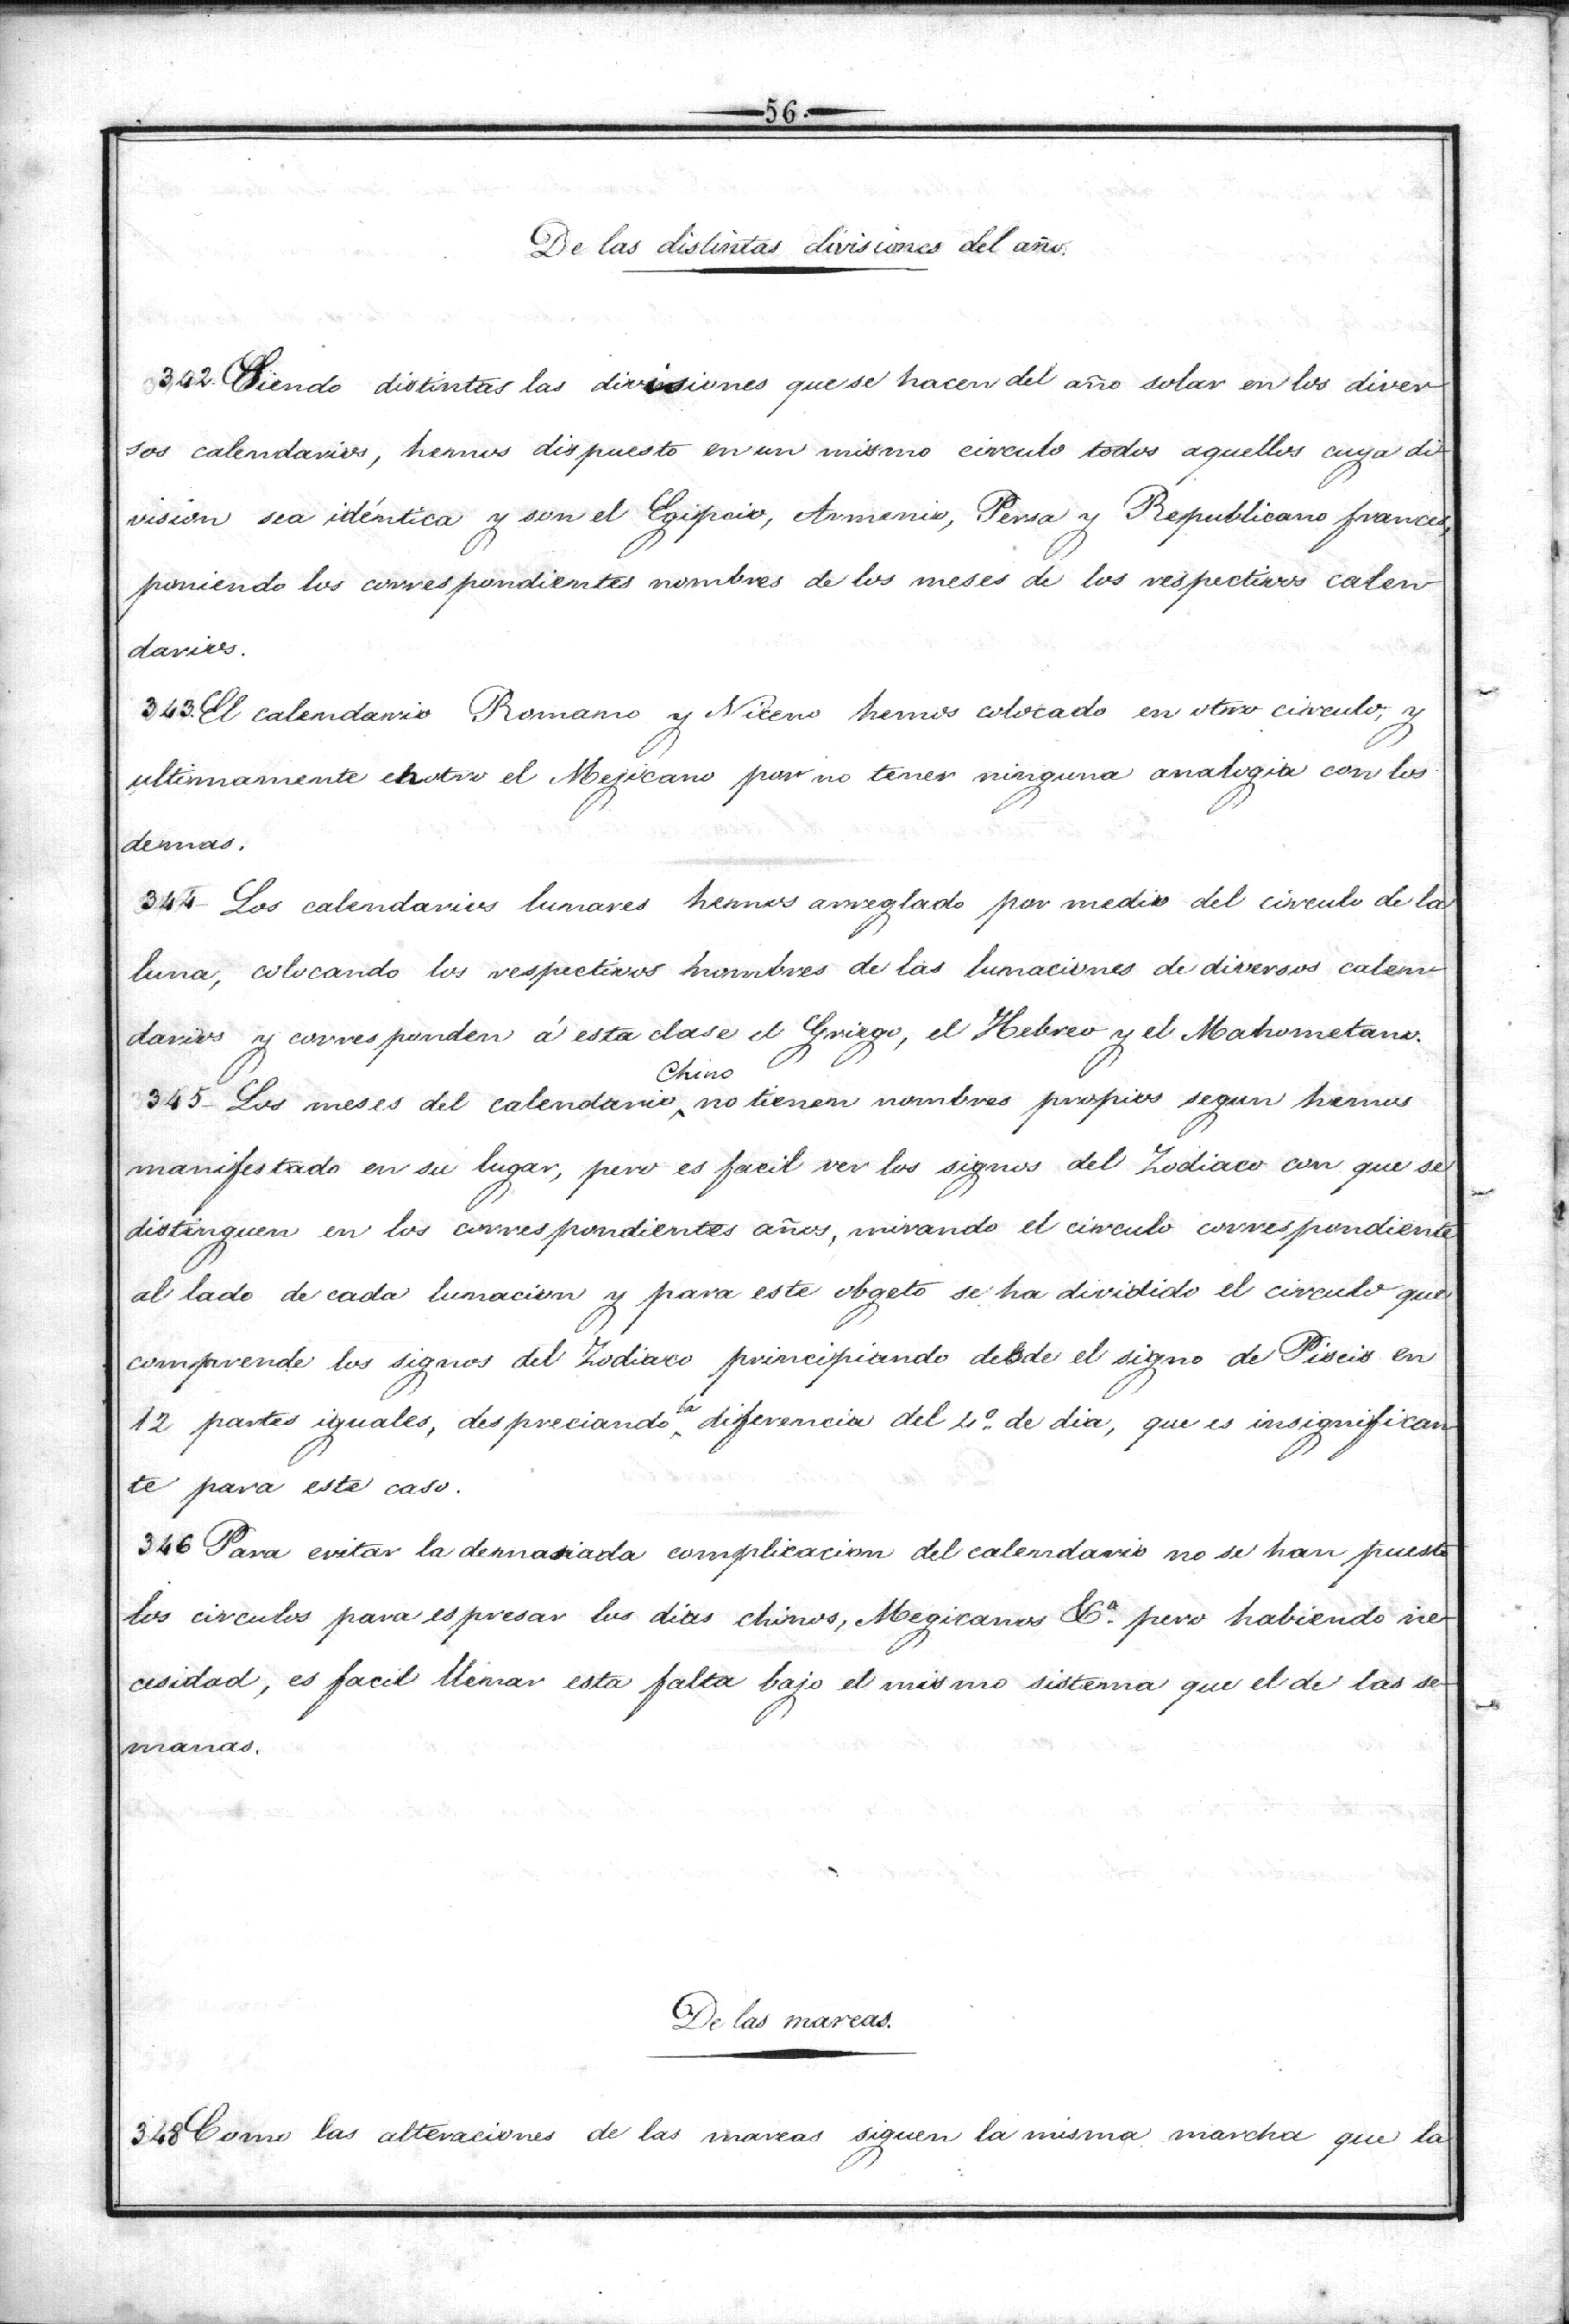 56.
De las distintas divisiones del año.
342. Siendo distintas las divisiones que se hacen del año solar en los diver
sos calendarios, hemos dispuesto en un mismo circulo todos aquellos cuya di
vision sea idéntica y son el Egipcio, Armenio, Persa y Republicano frances,
poniendo los correspondientes nombres de los meses de los respectivos calen
darios.
343. El calendario Romano y Niceno hemos colocado en otro circulo, y
ultimamente en otro el Mejicano por no tener ninguna analogia con los
demas.
344 Los calendarios lunares hemos arreglado por medio del circulo de la
luna, colocando los respectivos nombres de las lunaciones de diversos calen
darios y corresponden á esta clase el Griego, el Hebreo y el Mahometano.
Chino
345 Los meses del calendario no tienen nombres propios segun hemos
manifestado en su lugar, pero es facil ver los signos del Zodiaco con que se
distinguen en los correspondientes años, mirando el circulo correspondiente
al lado de cada lunacion y para este obgeto se ha dividido el circulo que
comprende los signos del Zodiaco principiando desde el signo de Piscis en
12 partes iguales, despreciando la diferencia del 4º de dia, que es insignifican
te para este caso.
346 Para evitar la demasiada complicacion del calendario no se han puesto
los circulos para espresar los dias chinos, Megicanos &ª. pero habiendo ne
cesidad, es facil llenar esta falta bajo el mismo sistema que el de las se
manas.
De las mareas.
348 Como las alteraciones de las mareas siguen la misma marcha que la